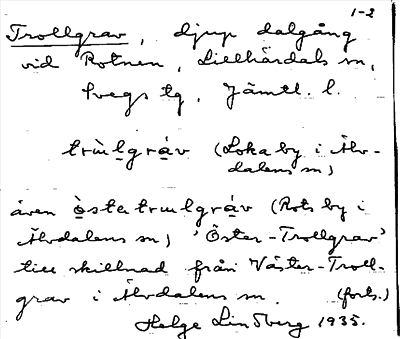 1-2
Trollgrav, djup dalgång
vid Rotnen, Lillhärdals sn,
Svegs tg, Jämtl. l.
trùlgráv (Loka by i Älv-
dalens sn)
även òstetrulgráv (Rots by i
Älvdalens sn) 'Öster-Trollgrav'
till skillnad från Väster-Troll-
grav i Älvdalens sn. (forts.)
Helge Lindberg 1935.